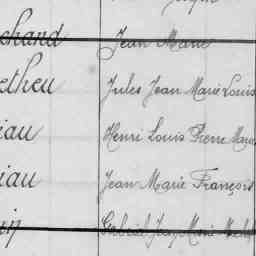 chand Jean Marie
etheu Jules Jean Marie Louis
iau Henri Louis Pierre Marie
iau Jean Marie François
in Gabriel Jean Marie